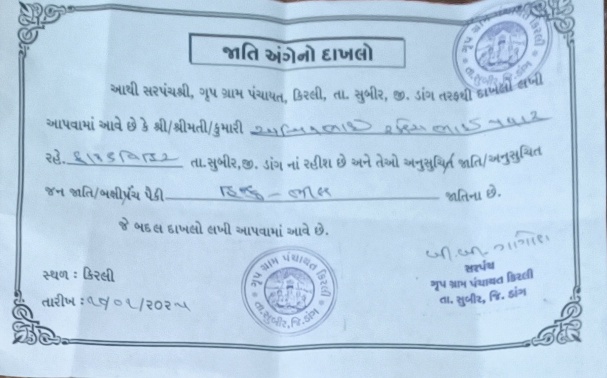 જાતિ અંગેનો દાખલો
આથી સરપંચશ્રી, ગૃપ ગ્રામ પંચાયત, કિરલી, તા. સુબીર, જી. ડાંગ તરફથી દાખલો લખી
આપવામાં આવે છે કે શ્રી/શ્રીમતી/કુમારી
રહે. તા.સુબીર,જી. ડાંગ નાં રહીશ છે અને તેઓ અનુસુચિત જાતિ/અનુસુચિત
જન જાતિ/બક્ષીપંચ પૈકી હિન્દુ - ભીલ જાતિના છે.
જે બદલ દાખલો લખી આપવામાં આવે છે.
સ્થળ : કિરલી
તારીખ :
સરપંચ
ગૃપ ગ્રામ પંચાયત કિરલી
તા. સુબીર, જિ. ડાંગ
ગૃપ ગ્રામ પંચાયત કિરલી
તા. સુબીર, જિ. ડાંગ